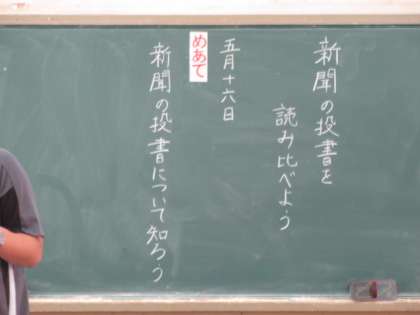 新聞の投書を
読み比べよう
五月十六日
めあて
新聞の投書について知ろう